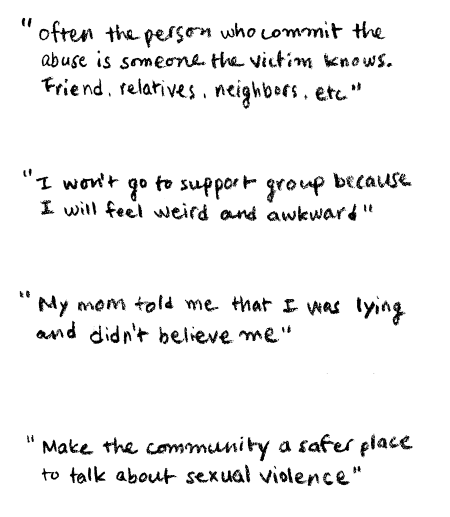 "often the person who commit the
abuse is someone the victim knows.
Friend, relatives, neighbors, etc"
"I won't go to support group because
I will feel weird and awkward"
"My mom told me that I was lying
and didn't believe me"
"Make the community a safer place
to talk about sexual violence"